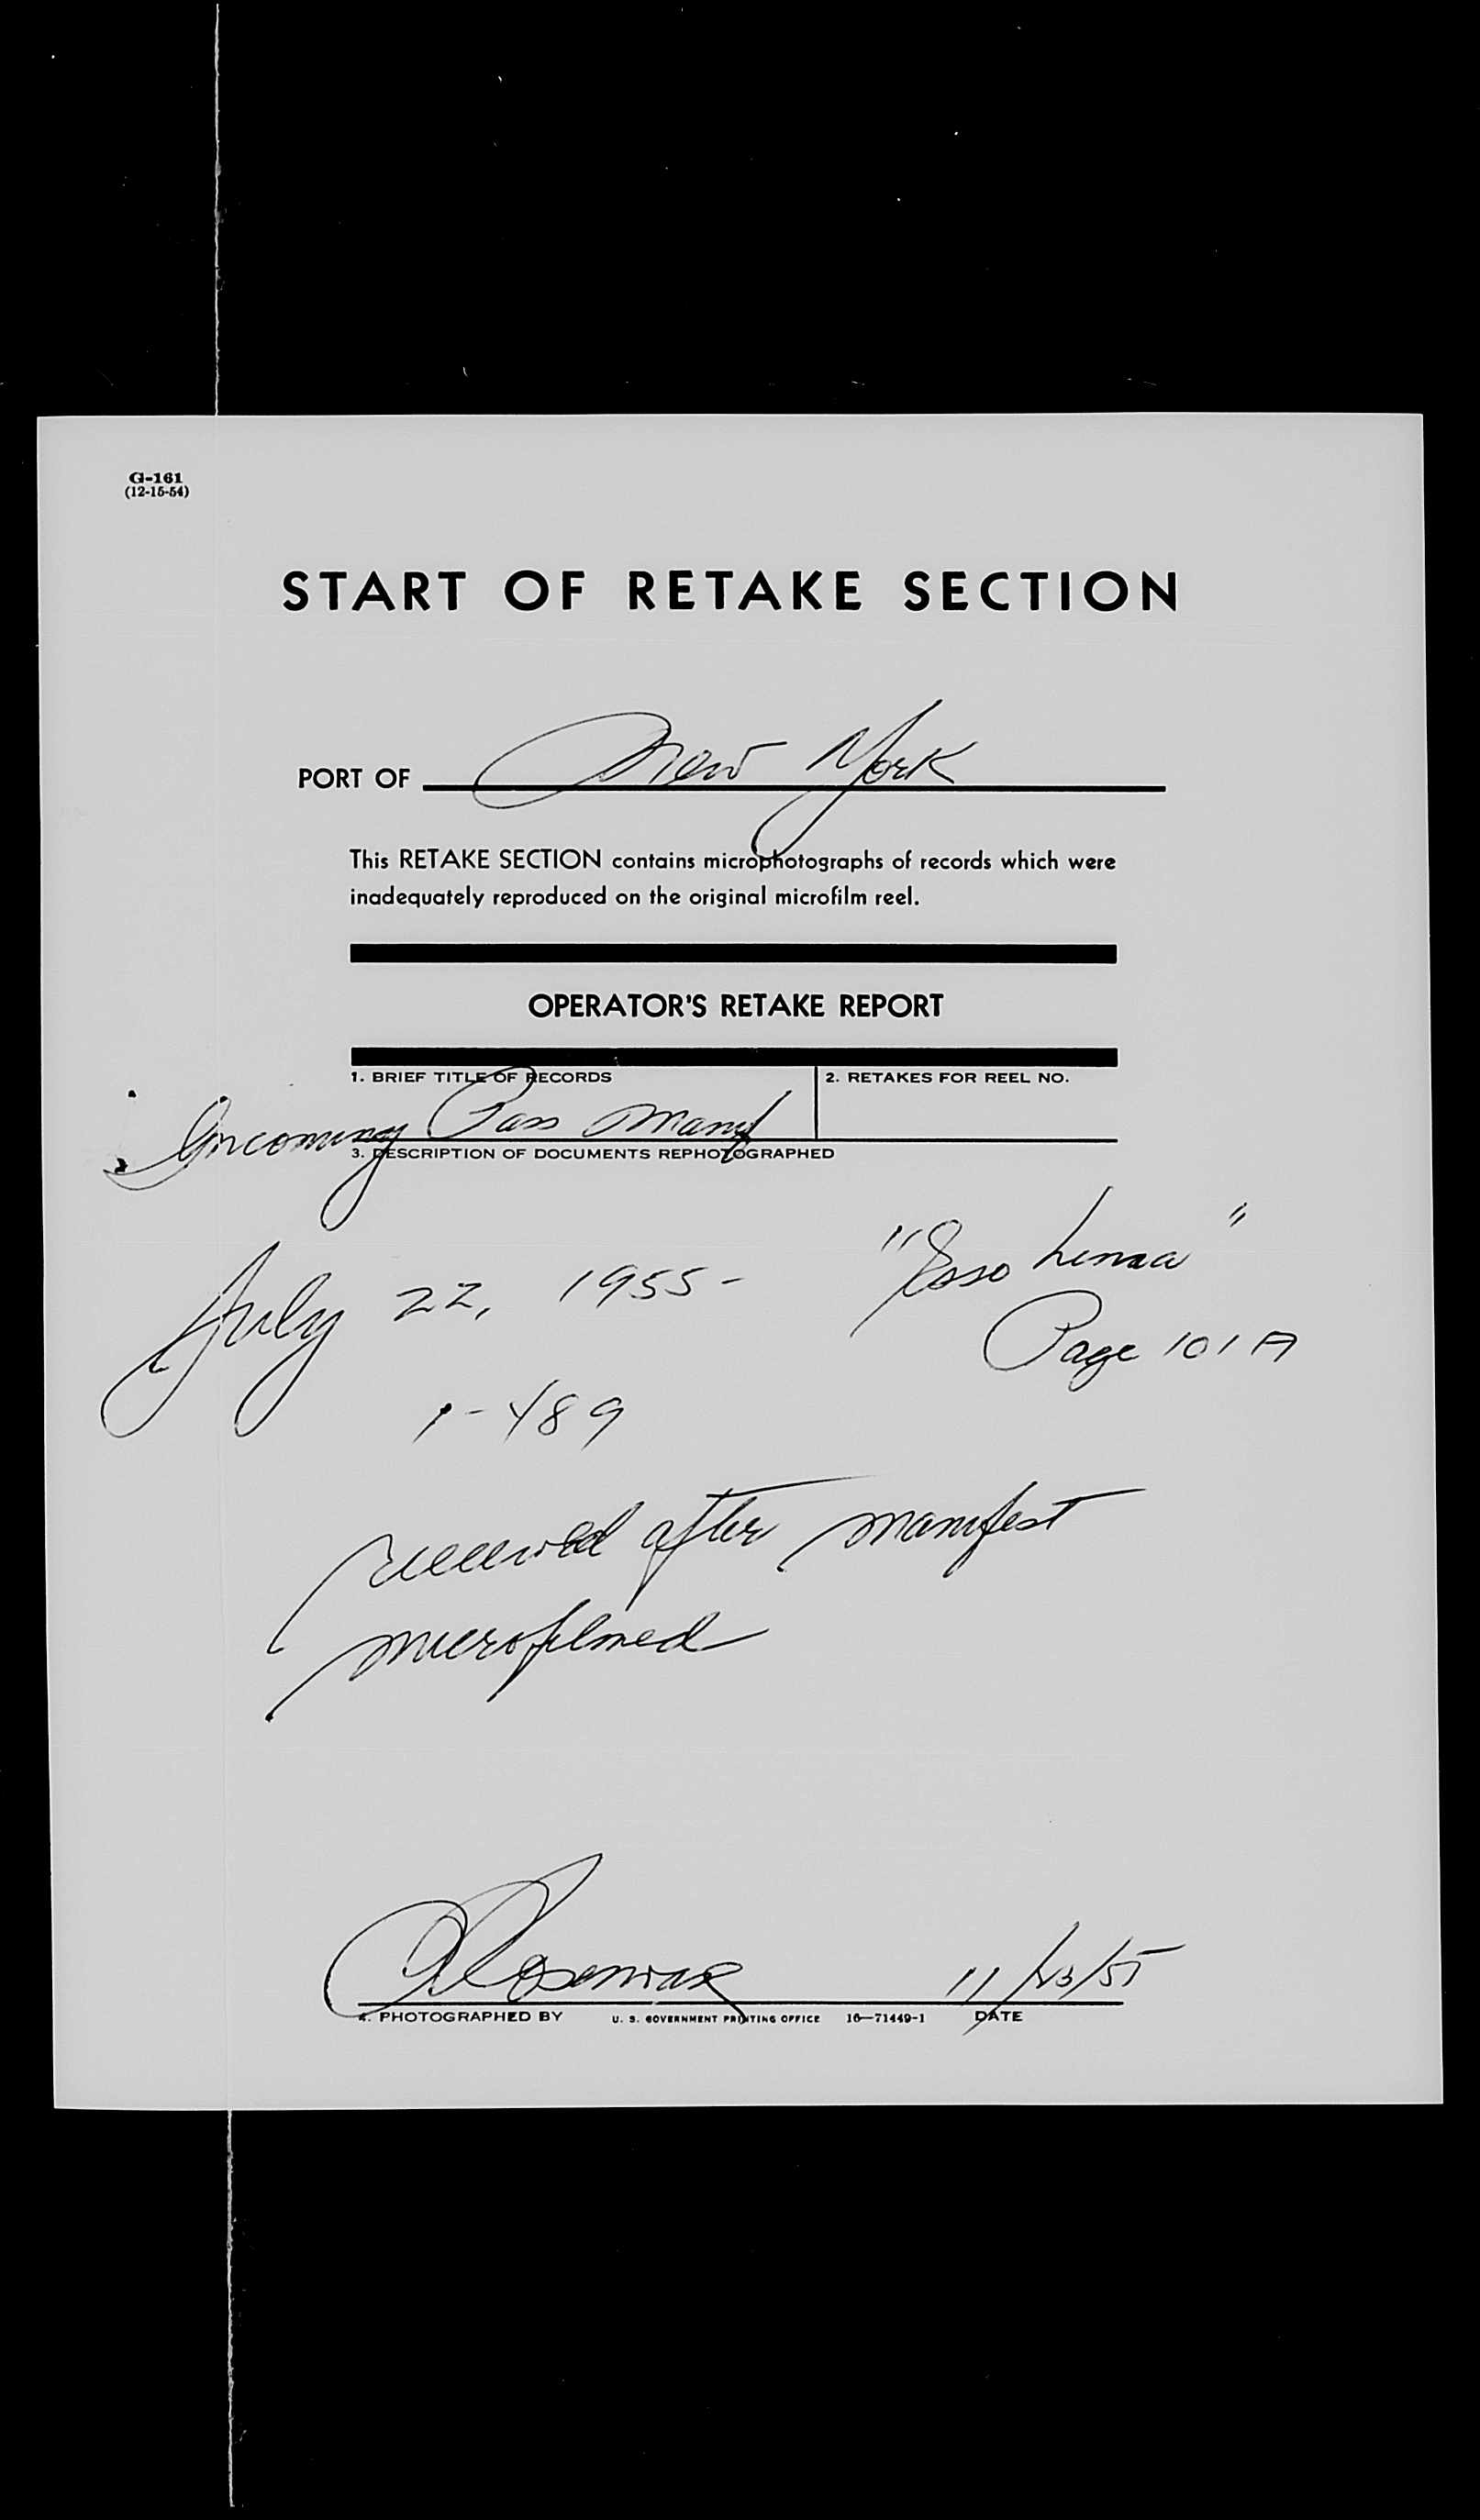 G-161
(12-15-54)
START OF RETAKE SECTION
PORT OF New York
This RETAKE SECTION contains microphotographs of records which were
inadequately reproduced on the original microfilm reel.
OPERATOR'S RETAKE REPORT
1. BRIEF TITLE OF RECORDS 2. RETAKES FOR REEL NO.
Incoming Pass Manif
3. DESCRIPTION OF DOCUMENTS REPHOTOGRAPHED
July 22, 1955 - "Esso Lima"
Page 101A
1-489
received after manifest
microfilmed
11/23/55
4. PHOTOGRAPHED BY U. S. GOVERNMENT PRINTING OFFICE 16—71449-1 DATE